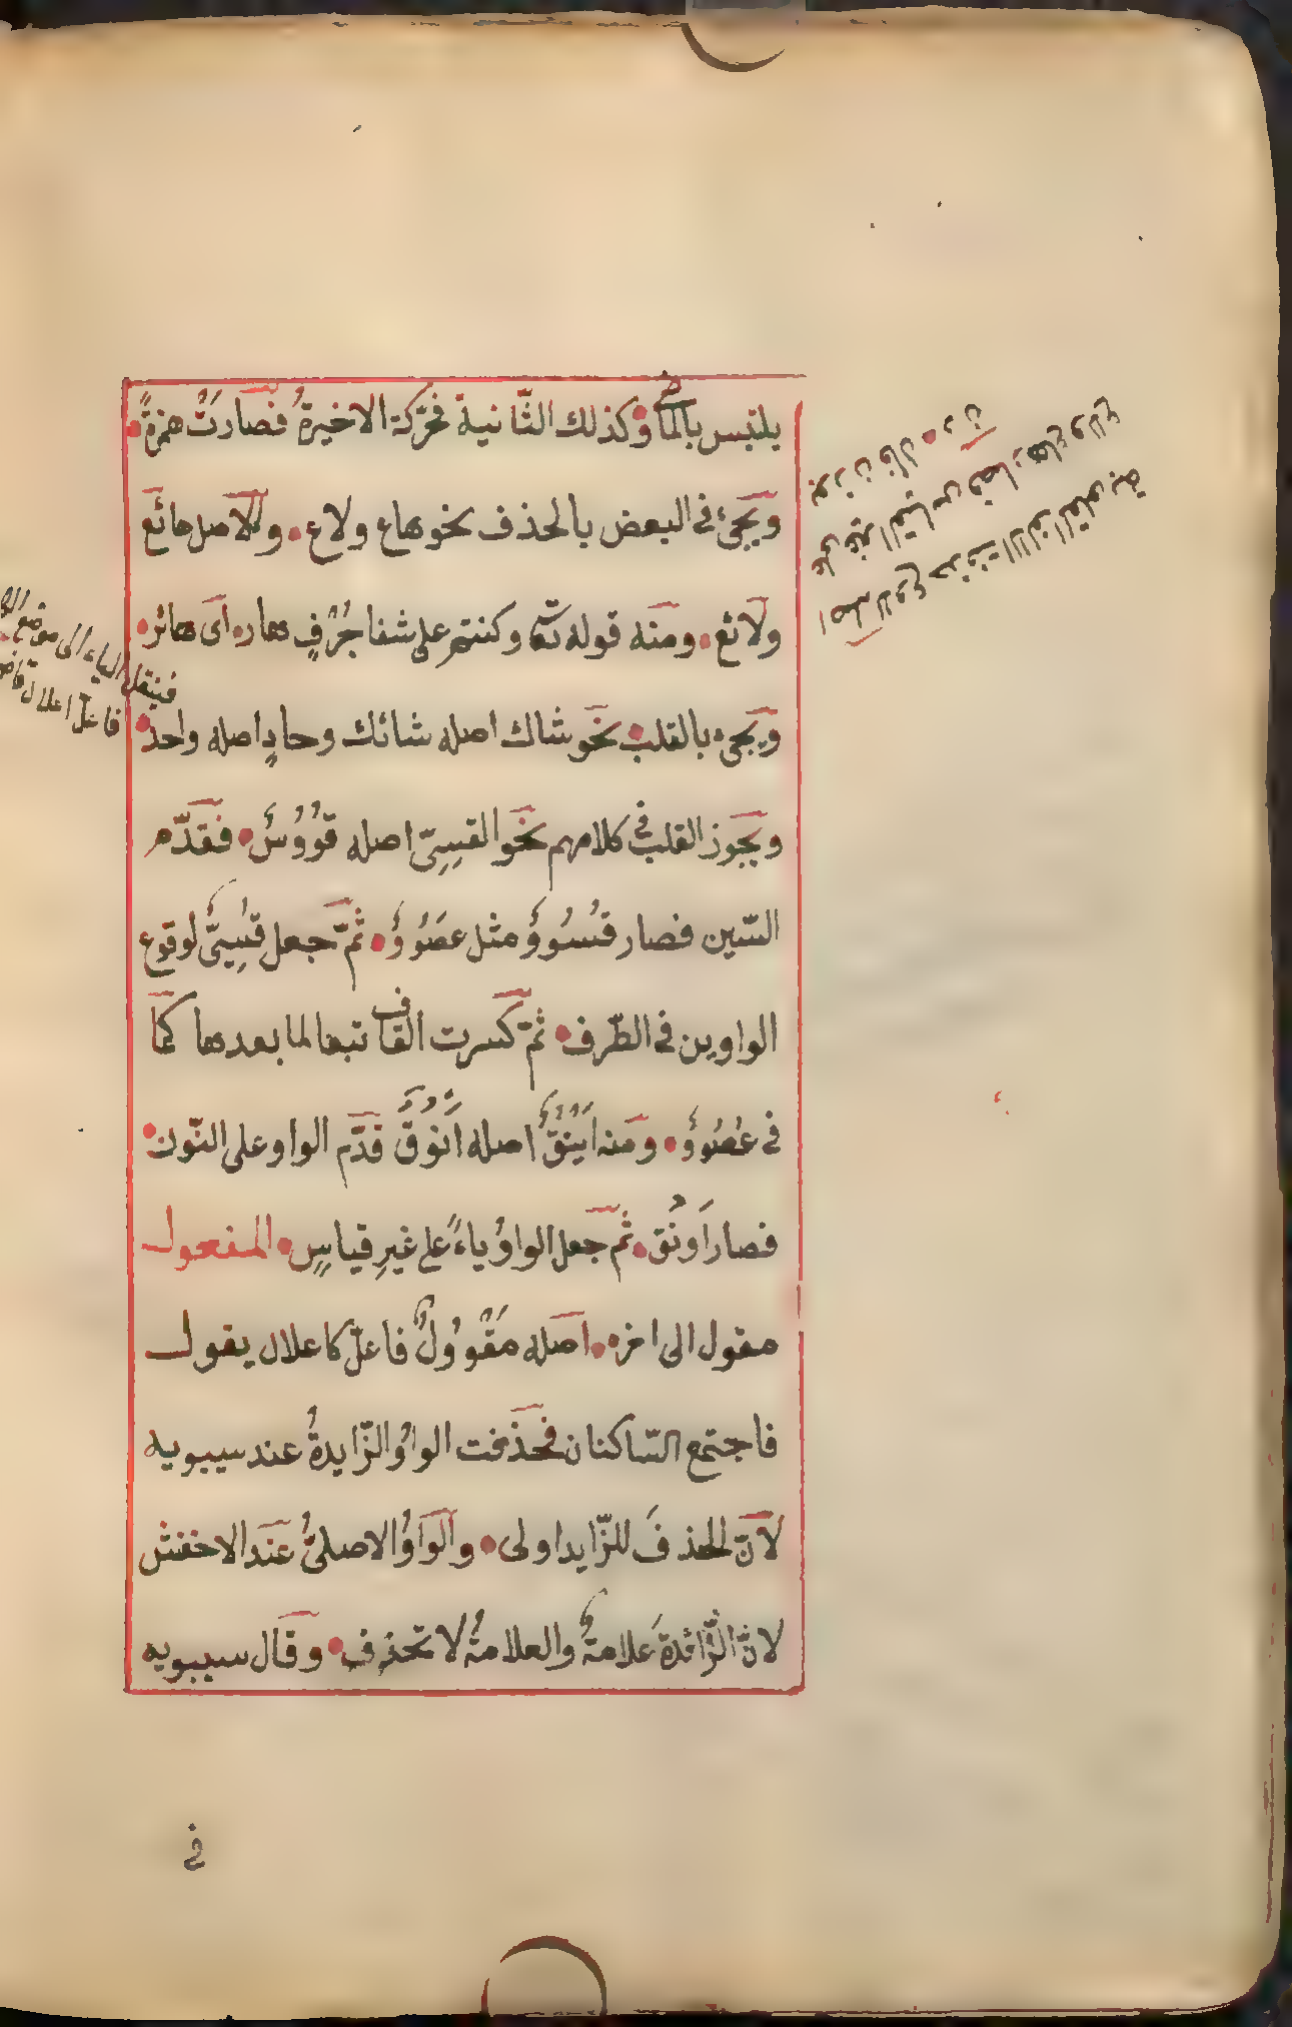 يلتبس بالماضى وكذلك الثّانية فحرّكة الاخيرةُ فصارتْ همزةً
ويجئ فى البعض بالحذف نحو هاع ولاع والاصل هائع
ولائع ومنه قوله تعٰ وكنتم على شفا جُرُفٍ هار اى هائر
ويجئ بالقلب نحو شاك اصله شائك وحادٍ اصله واحد
ويجوز القلب فى كلامهم نحو القسِىّ اصله قوُوُسٌ فقدّم
السّين فصار قسُووٌ مثل عصُووٌ ثمّ جعل قسُِيٌّ لوقوع
الواوين فى الطّرف ثمّ كسرت القاف تبعا لما بعدها كما
فى عُصُووٌ ومنه اَيْنُقٌ اصله اَنْوُقٌ قدّم الواو على النّون
فصار اَونُق ثمّ جعل الواوُ ياءً على غيرِ قياسٍ المفعول
مقول الى اخره اصله مَقْوُولٌ فاعلّ كاعلال يقول
فاجتمع السّاكنان فحذفت الواوُ الزّايدةُ عند سيبويه
لانّ الحذفَ للزّايد اولى والواوُ الاصلىُّ عند الاخفش
لانّ الزّائدةَ علامةٌ والعلامةُ لا تحذف وقال سيبويه
فى
على غير القياس فصار هاع ولاع
اصله لاوع حذفت الالف
فينقل الياء الى موضع
فاعلّ اعلال